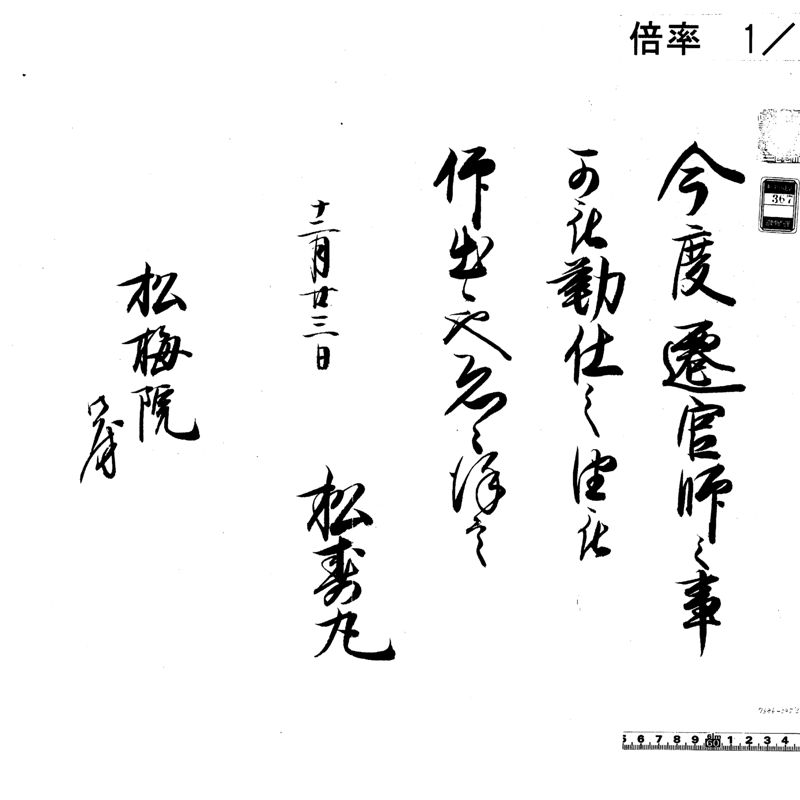 倍率 1／
367
今度遷宮師之事
可被勤仕之 被
仰出候也恐々謹言
十二月廿三日
松寿丸
松梅院
御房
6 7 8 9 60 1 2 3 4